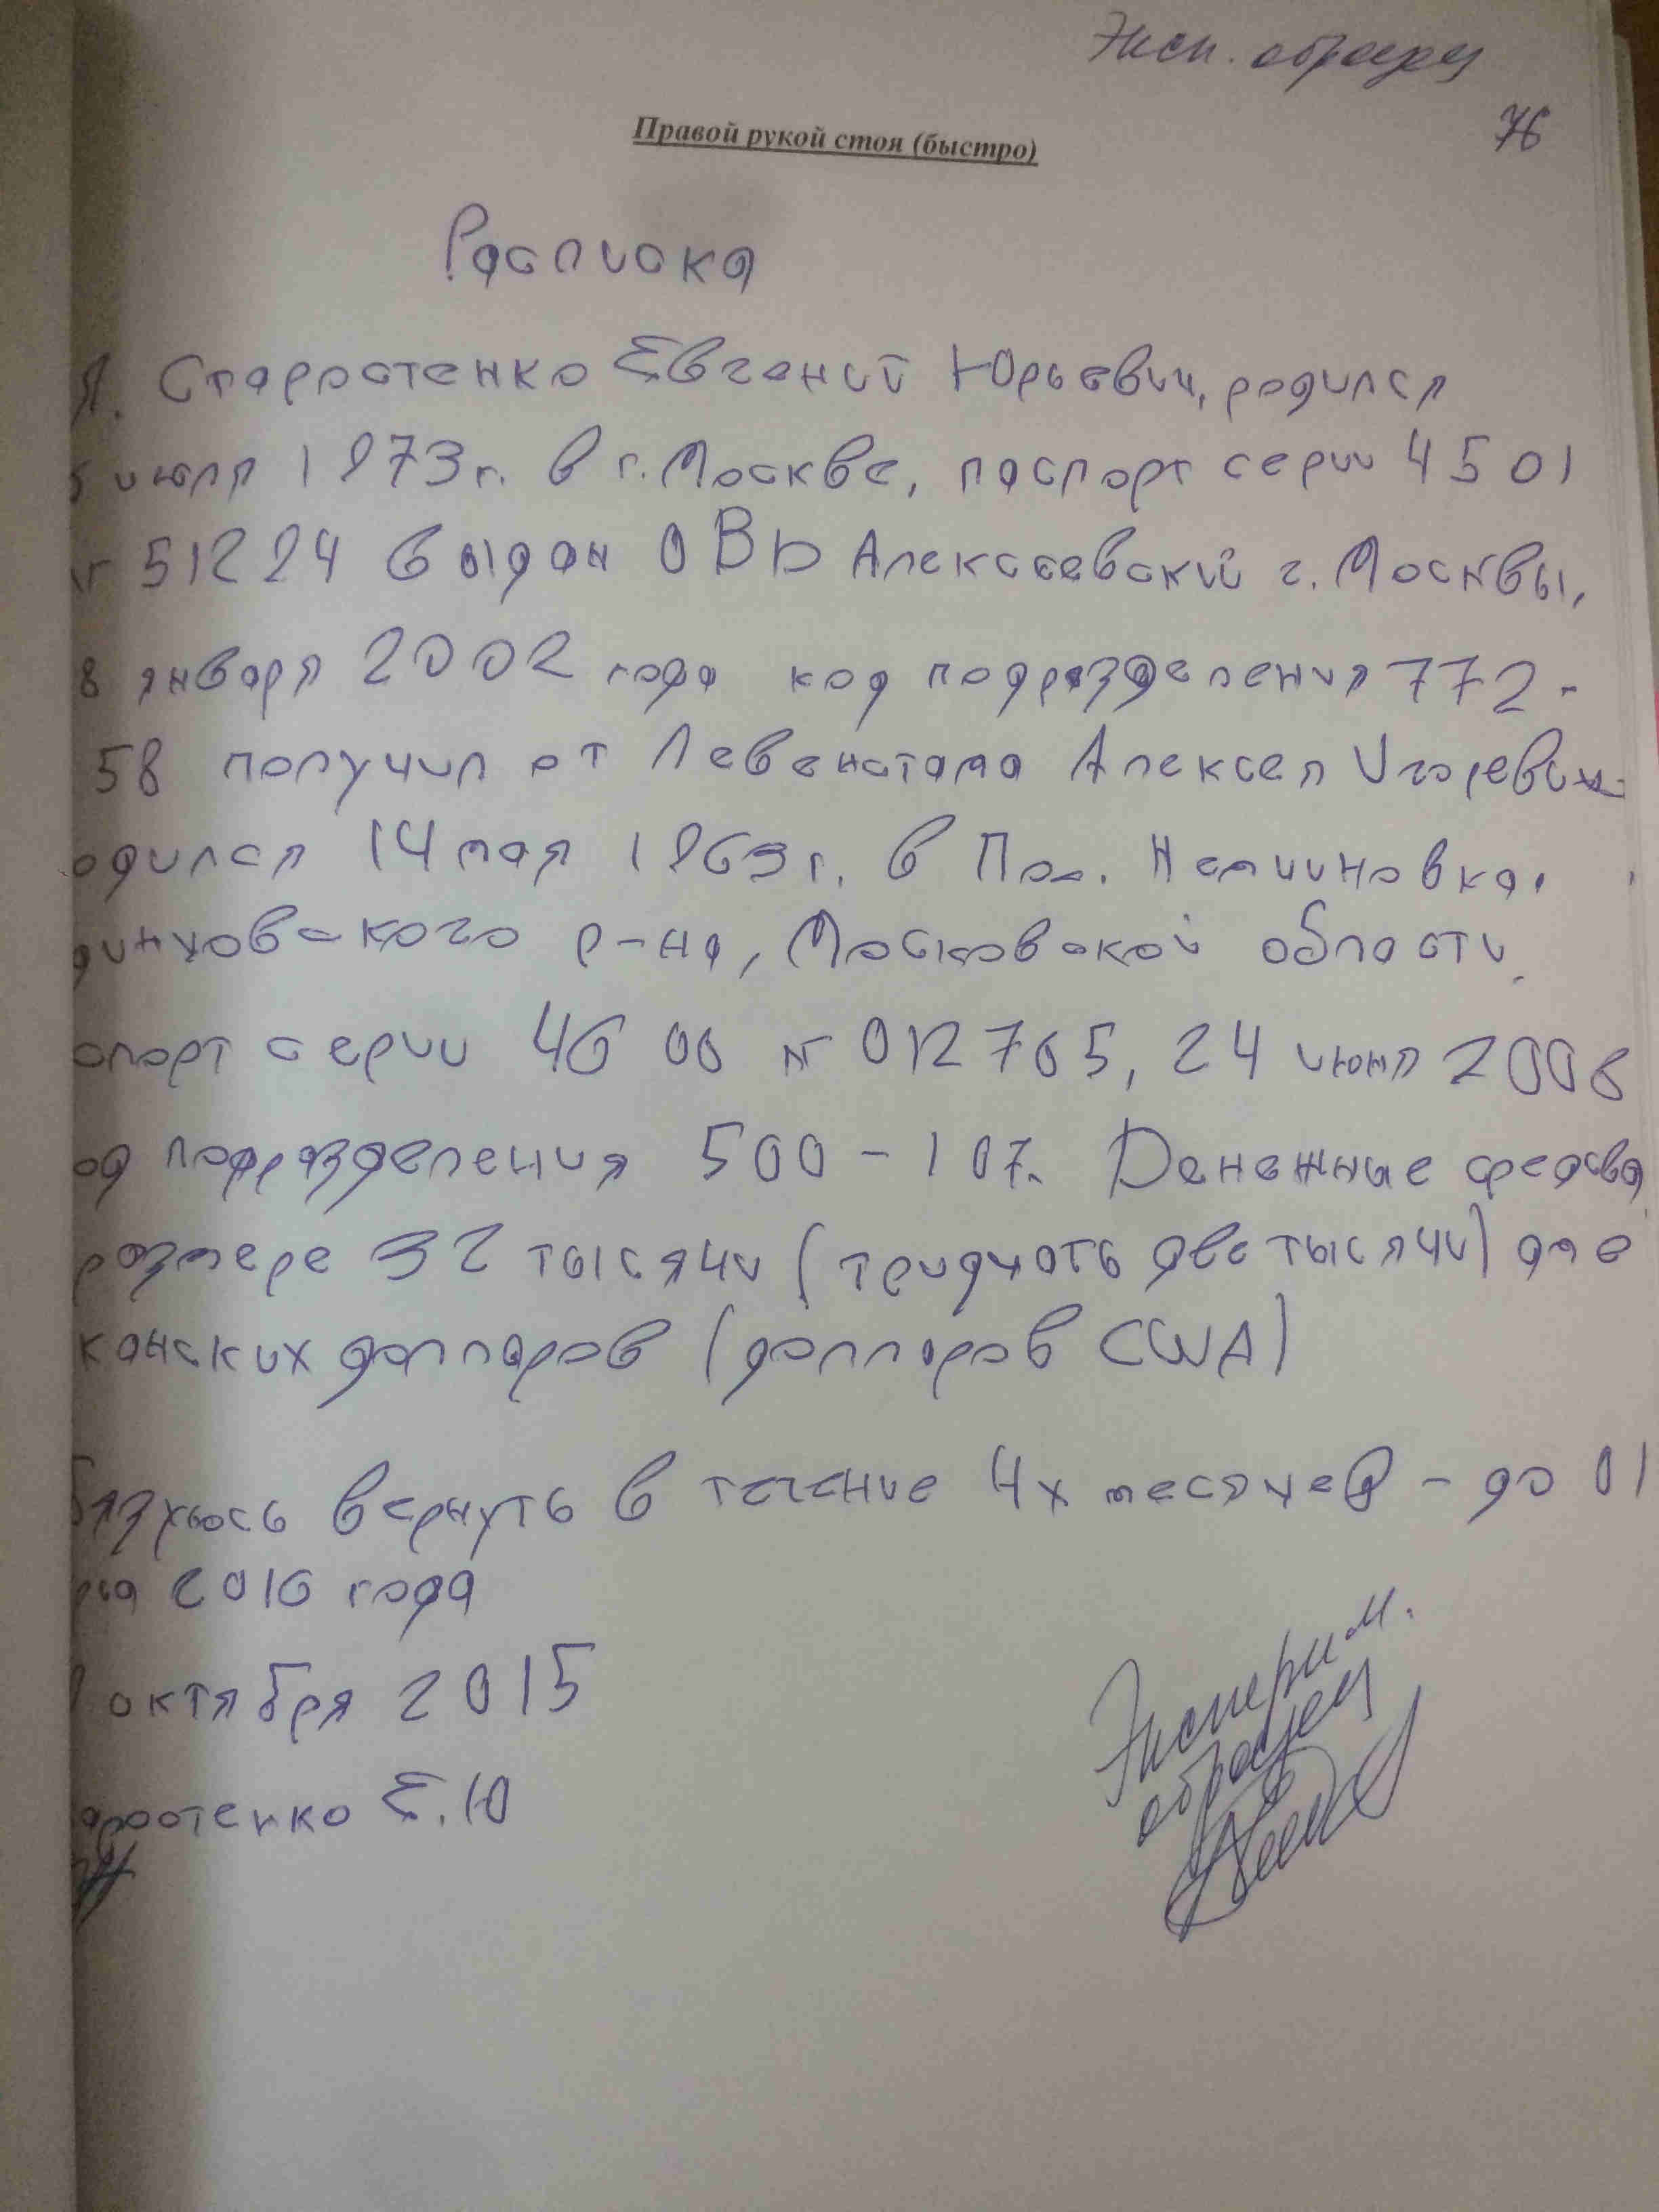 Эксп. образец
76
Правой рукой стоя (быстро)
Расписка
Я. Старростенко Евгений Юрьевич, родился
июля 1973г. в г. Москве, паспорт серии 45 01
51224 выдан ОВД Алексеевский г. Москвы,
8 января 2002 года код подразделения 772-
58 получил от Левенстама Алексея Игоревич
одился 14 мая 1963г. в Пос. Немчиновка,
динцовского р-на, Московской области,
спорт серии 46 00 № 012765, 24 июня 2008
од подразделения 500-107. Денежные средсва
размере 32 тысячи (тридцать две тысячи) аме
канских долларов (долларов США)
бязуюсь вернуть в течение 4х месяцев - до 01
2016 года
октября 2015
аростенко Е.Ю
Эксперим.
образец